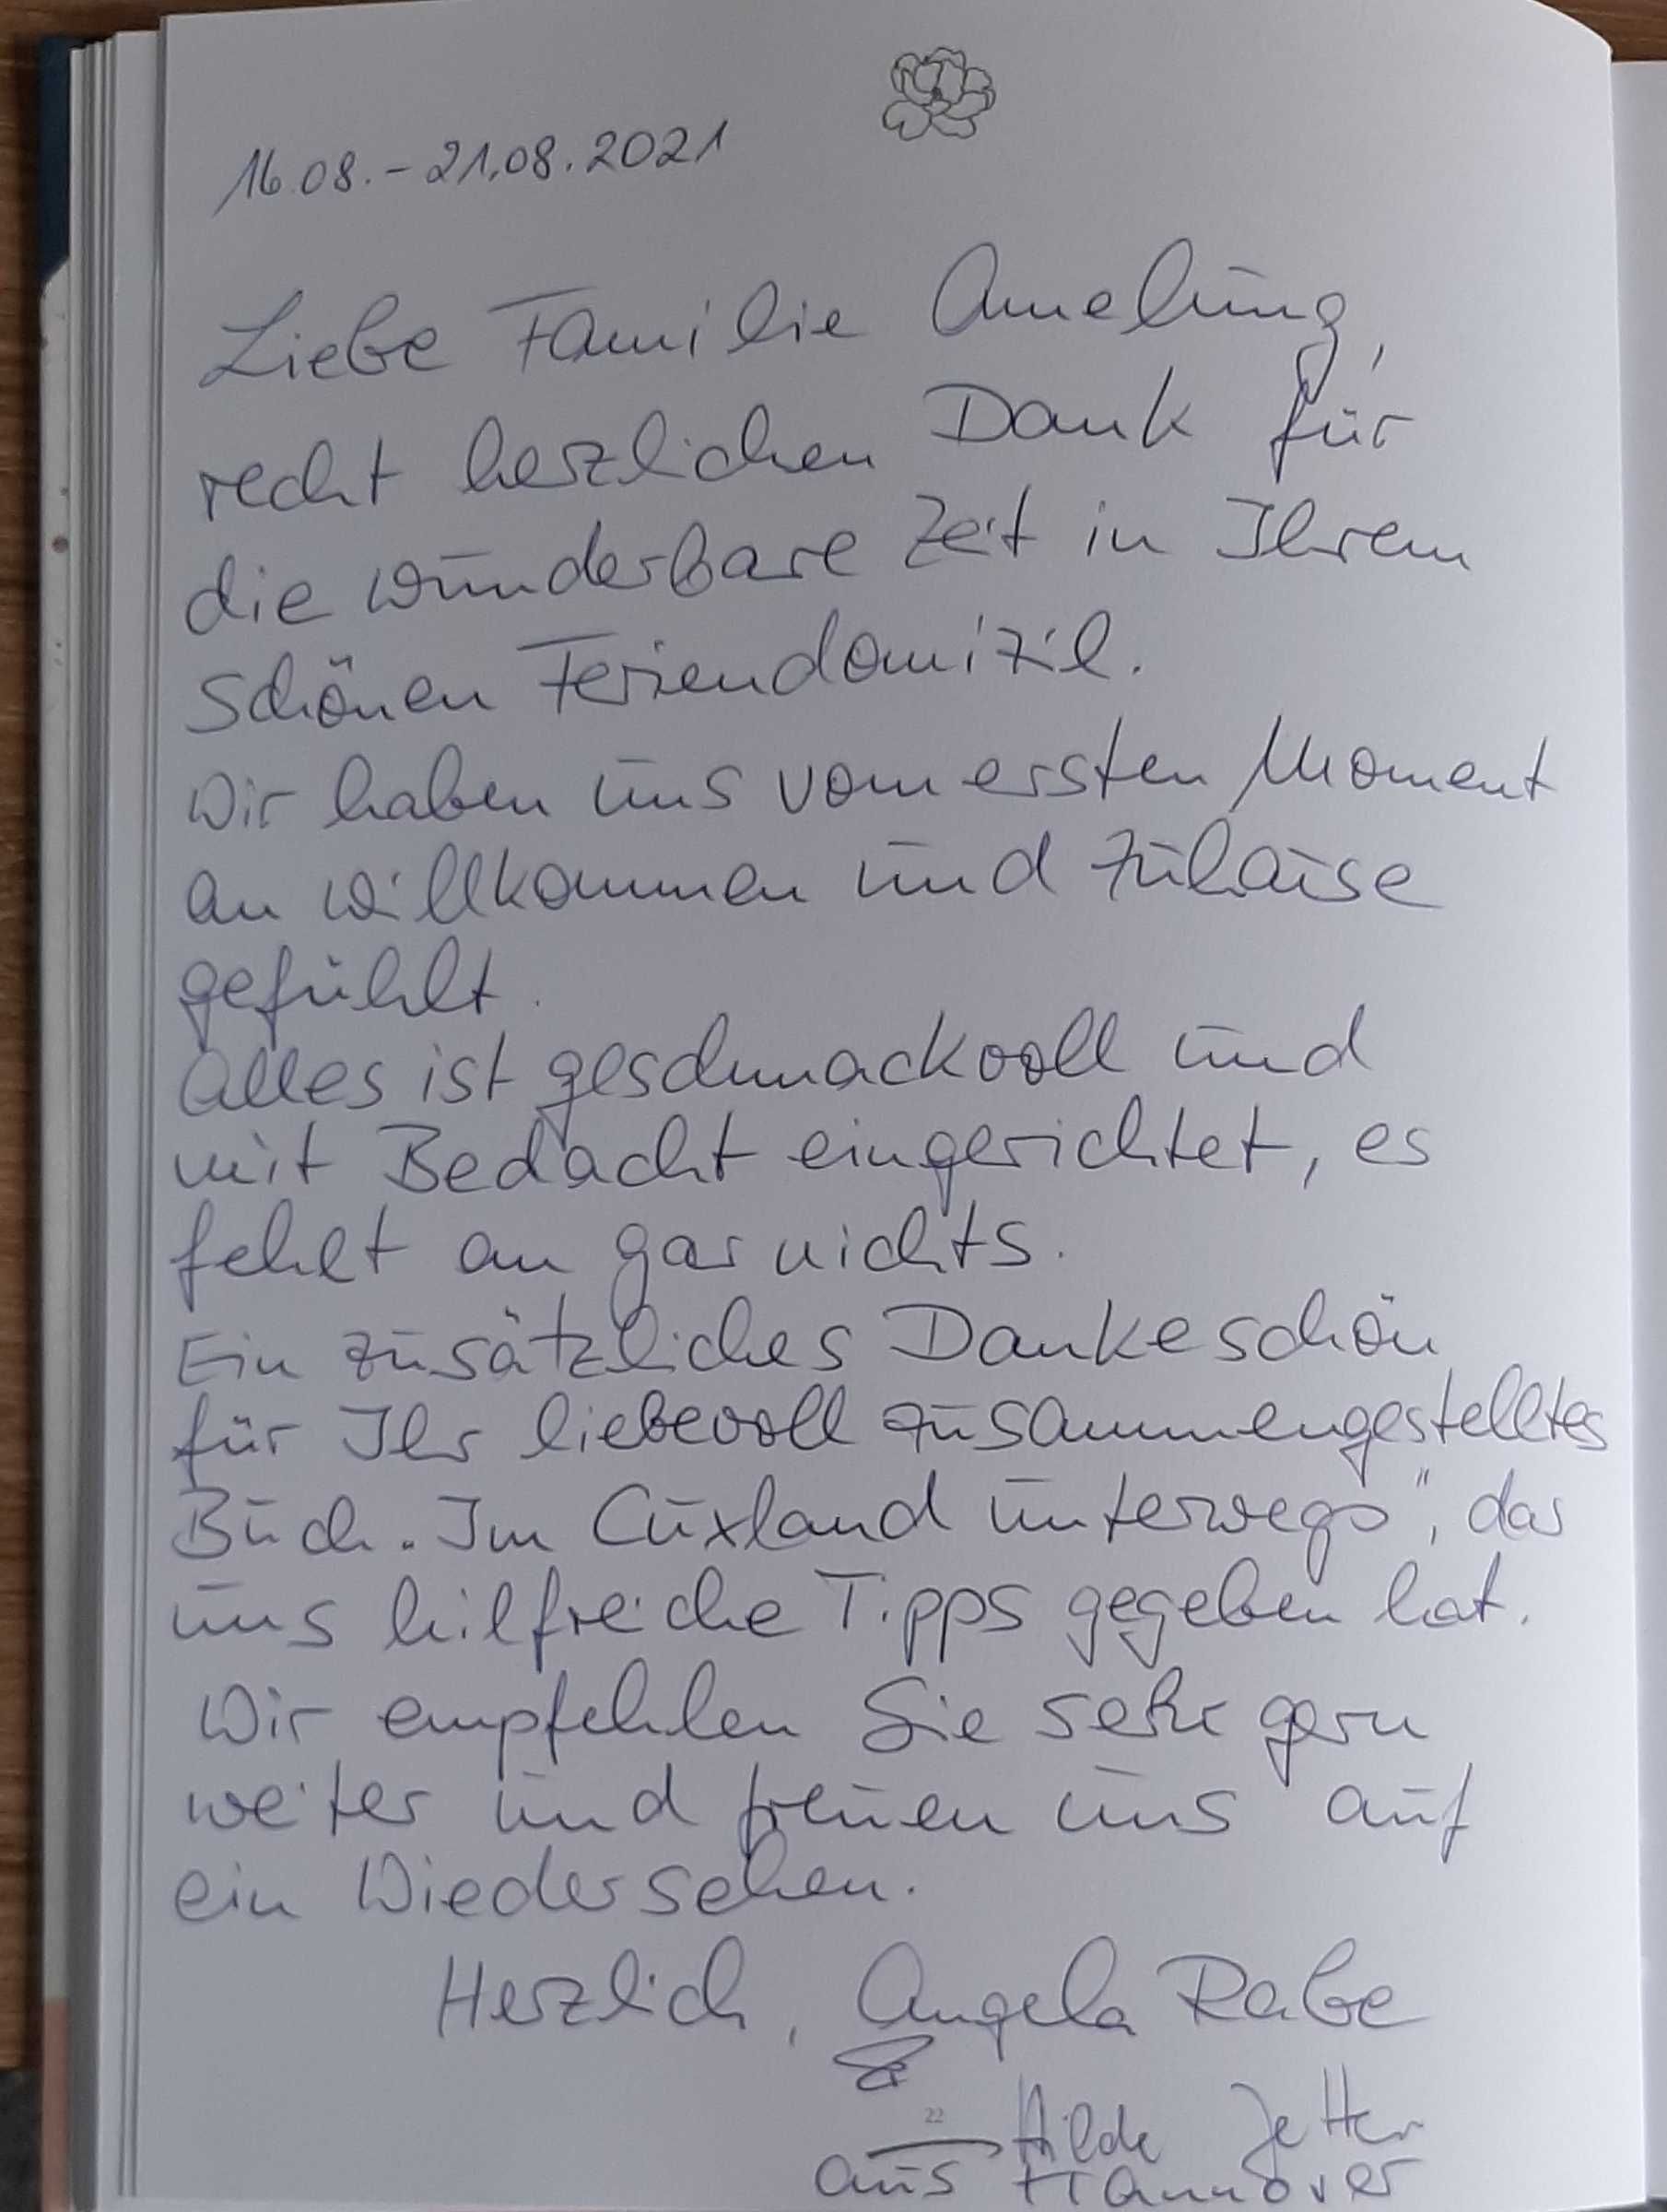 16.08.-21.08.2021
Liebe Familie Amelung,
recht herzlichen Dank für
die wunderbare Zeit in Ihrem
schönen Feriendomizil.
Wir haben uns vom ersten Moment
an willkommen und zuhause
gefühlt.
Alles ist geschmackvoll und
mit Bedacht eingerichtet, es
fehlt an gar nichts.
Ein zusätzliches Dankeschön
für Ihr liebevoll zusammengestelltes
Buch. Im Cuxland unterwegs", das
uns hilfreiche Tipps gegeben hat.
Wir empfehlen Sie sehr gern
weiter und freuen uns auf
ein Wiedersehen.
Herzlich, Angela Rabe
&
22
Hilde Jetter
aus Hannover